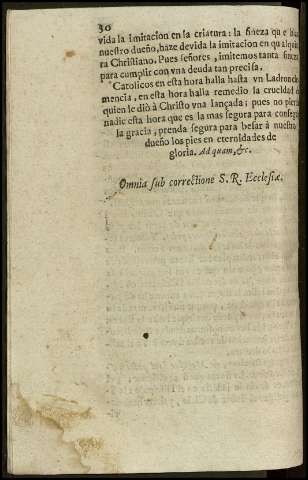 30
vida la imitacion en la criatura: la fineza que
nuestro dueño, haze devida la imitacion en qualquie
ra Christiano. Pues señores, imitemos tanta fineza
para cumplir con vna deuda tan precisa.
Catolicos en esta hora halla hasta vn Ladron cle
mencia, en esta hora halla remedio la crueldad d
quien le diò à Christo vna lançada; pues no pierda
nadie esta hora que es la mas segura para conseguir
la gracia, prenda segura para besar à nuestro
dueño los pies en eternidades de
gloria. Ad quam, &c.
Omnia sub correctione S. R. Ecclesiæ.